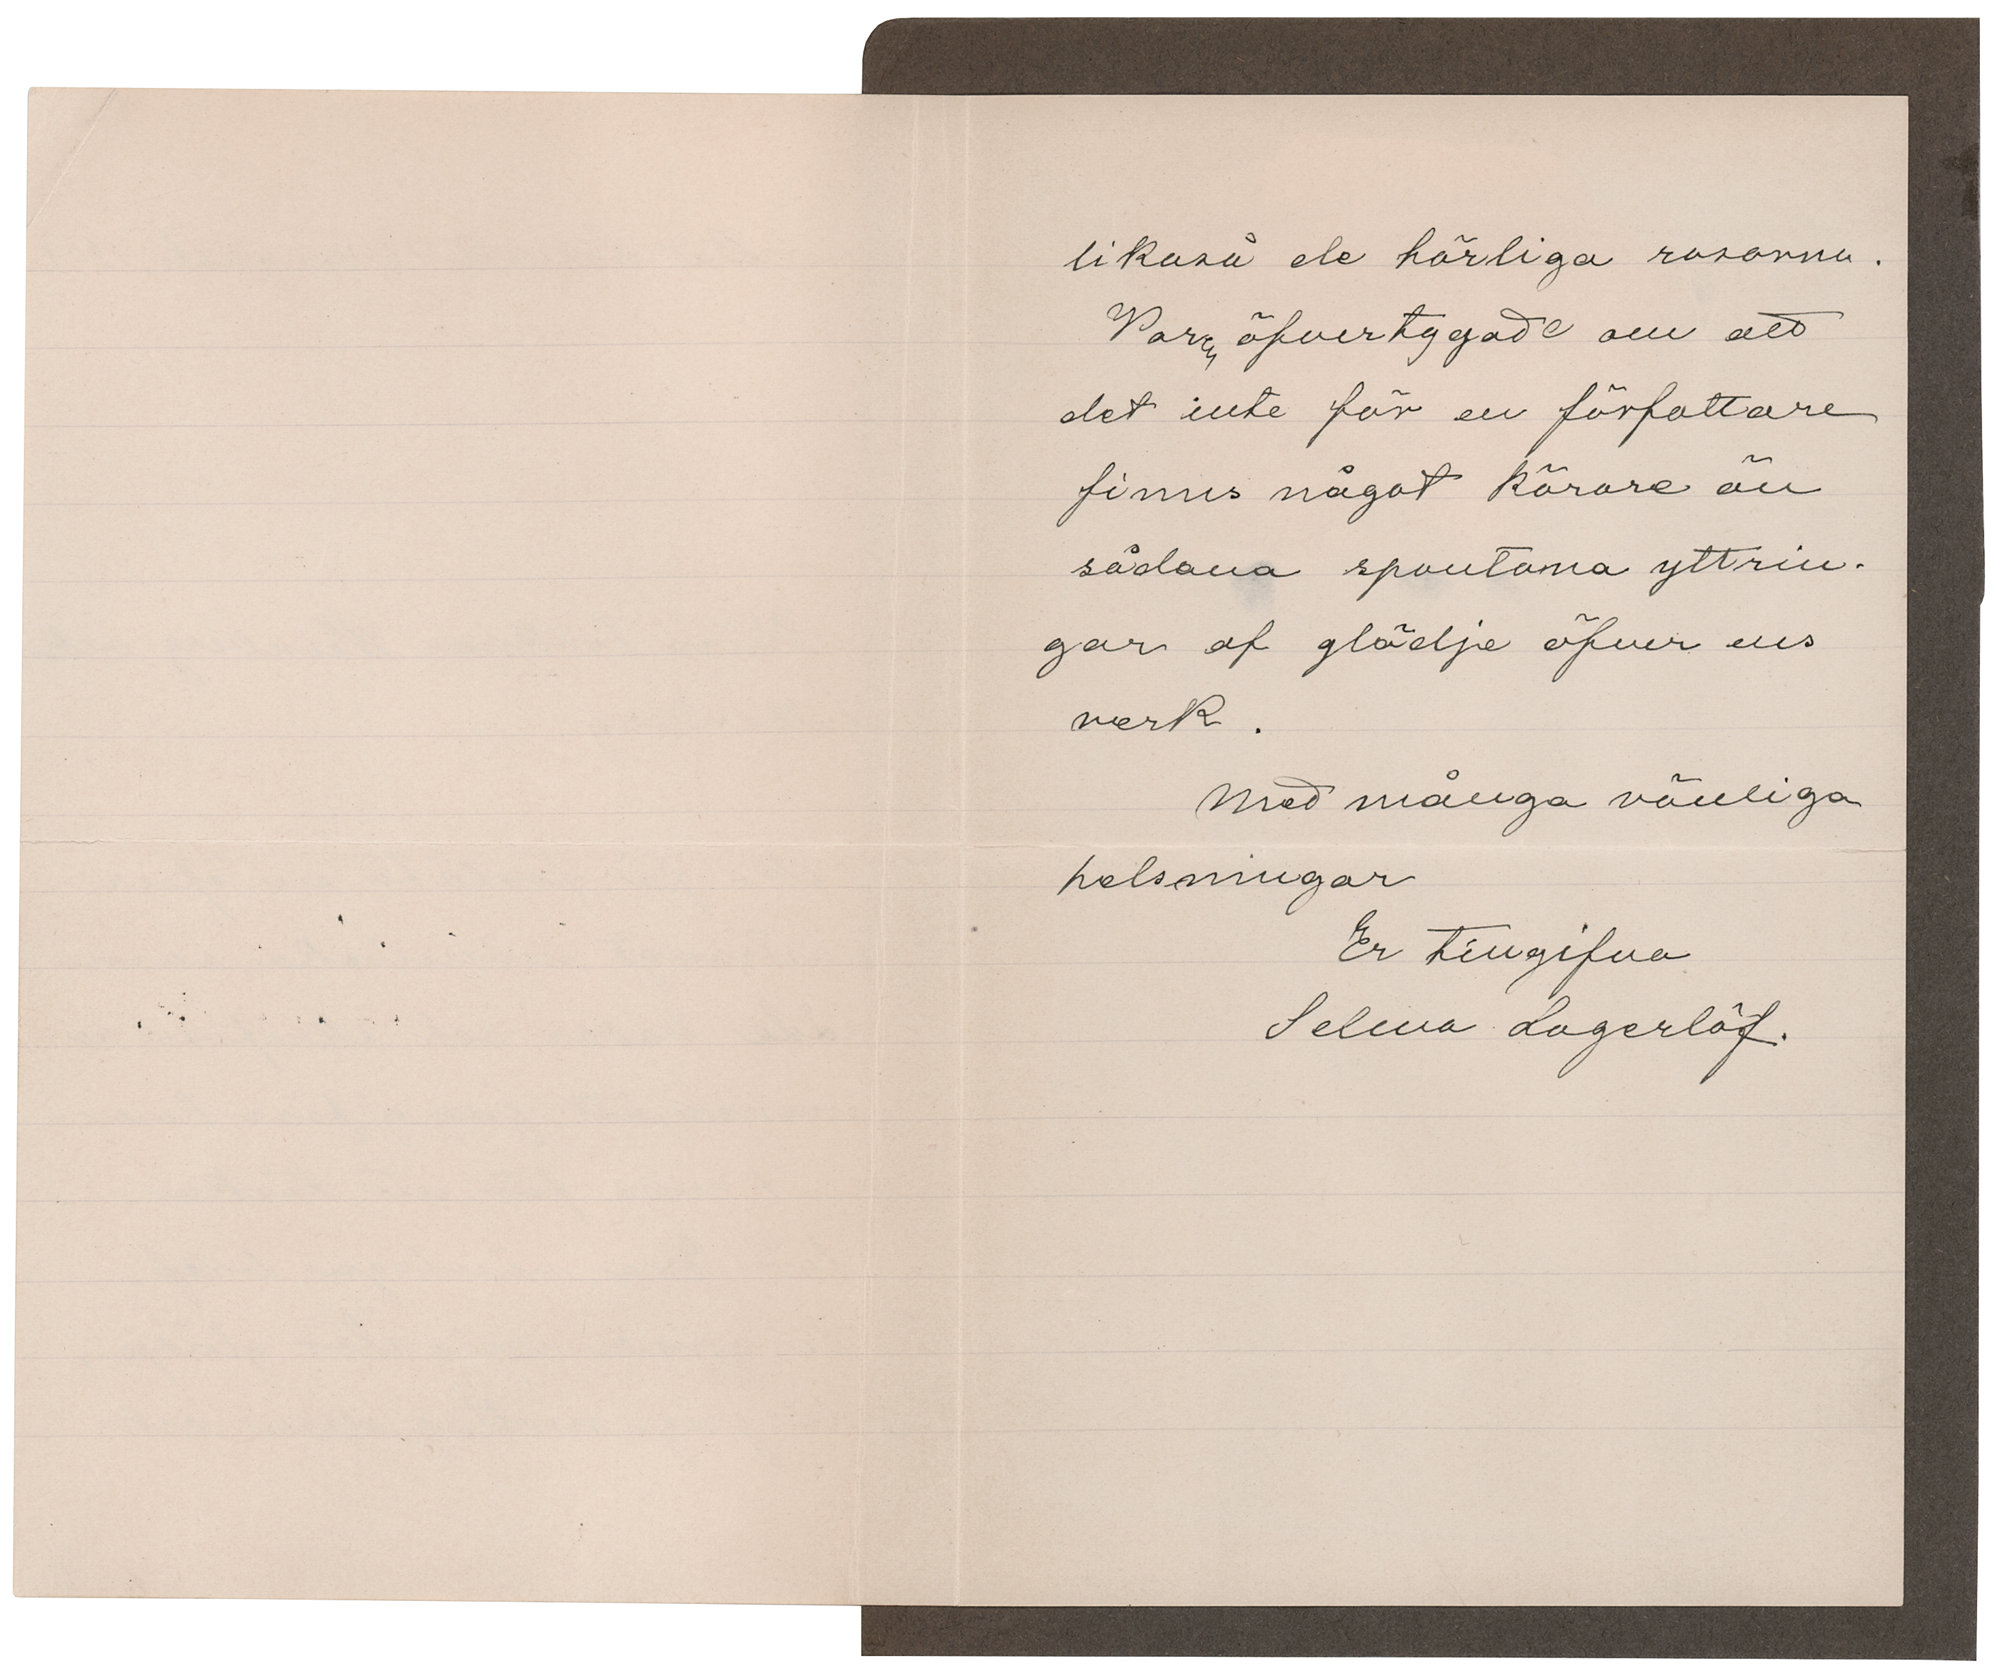 likaså de härliga rosorna.
Varen öfvertygade om att
det inte för en författare
finns något kärare än
sådana spontana yttrin-
gar af glädje öfver ens
verk.
Med många vänliga
helsningar
Er tillgifna
Selma Lagerlöf.